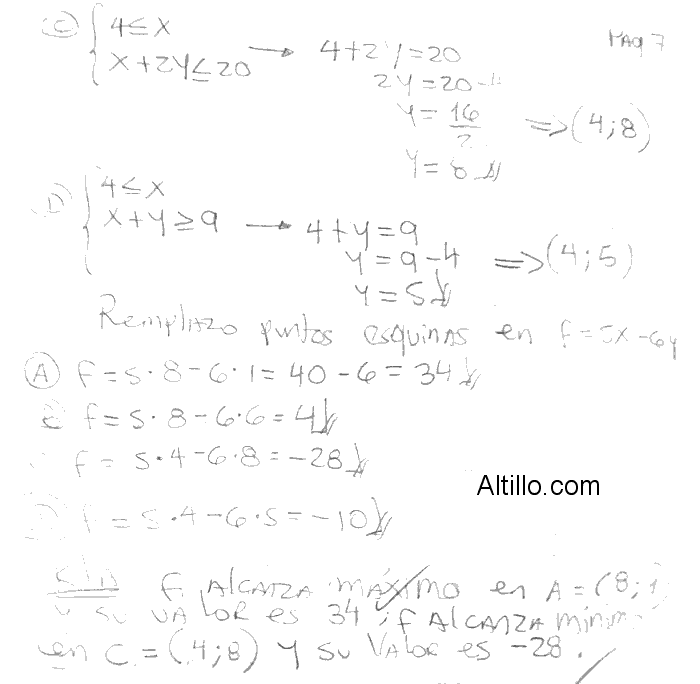 C) 4≤X
Pag 7
X+2Y≤20 → 4+2Y=20
2Y=20-4
Y=16/2 ⇒ (4;8)
Y=8
D) 4≤X
X+Y≥9 → 4+Y=9
Y=9-4 ⇒ (4;5)
Y=5
Remplazo puntos esquinas en f=5X-6y
A f=5·8-6·1=40-6=34
f=5·8-6·6=4
f=5·4-6·8=-28
Altillo.com
D f=5·4-6·5=-10
f Alcanza máximo en A=(8;1)
y su valor es 34 ; f Alcanza mínimo
en C=(4;8) y su valor es -28.